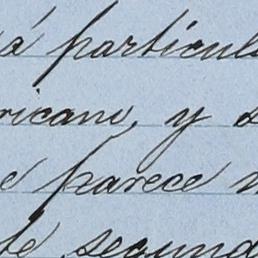 á particul
ricano, y s
e parece n
te segund